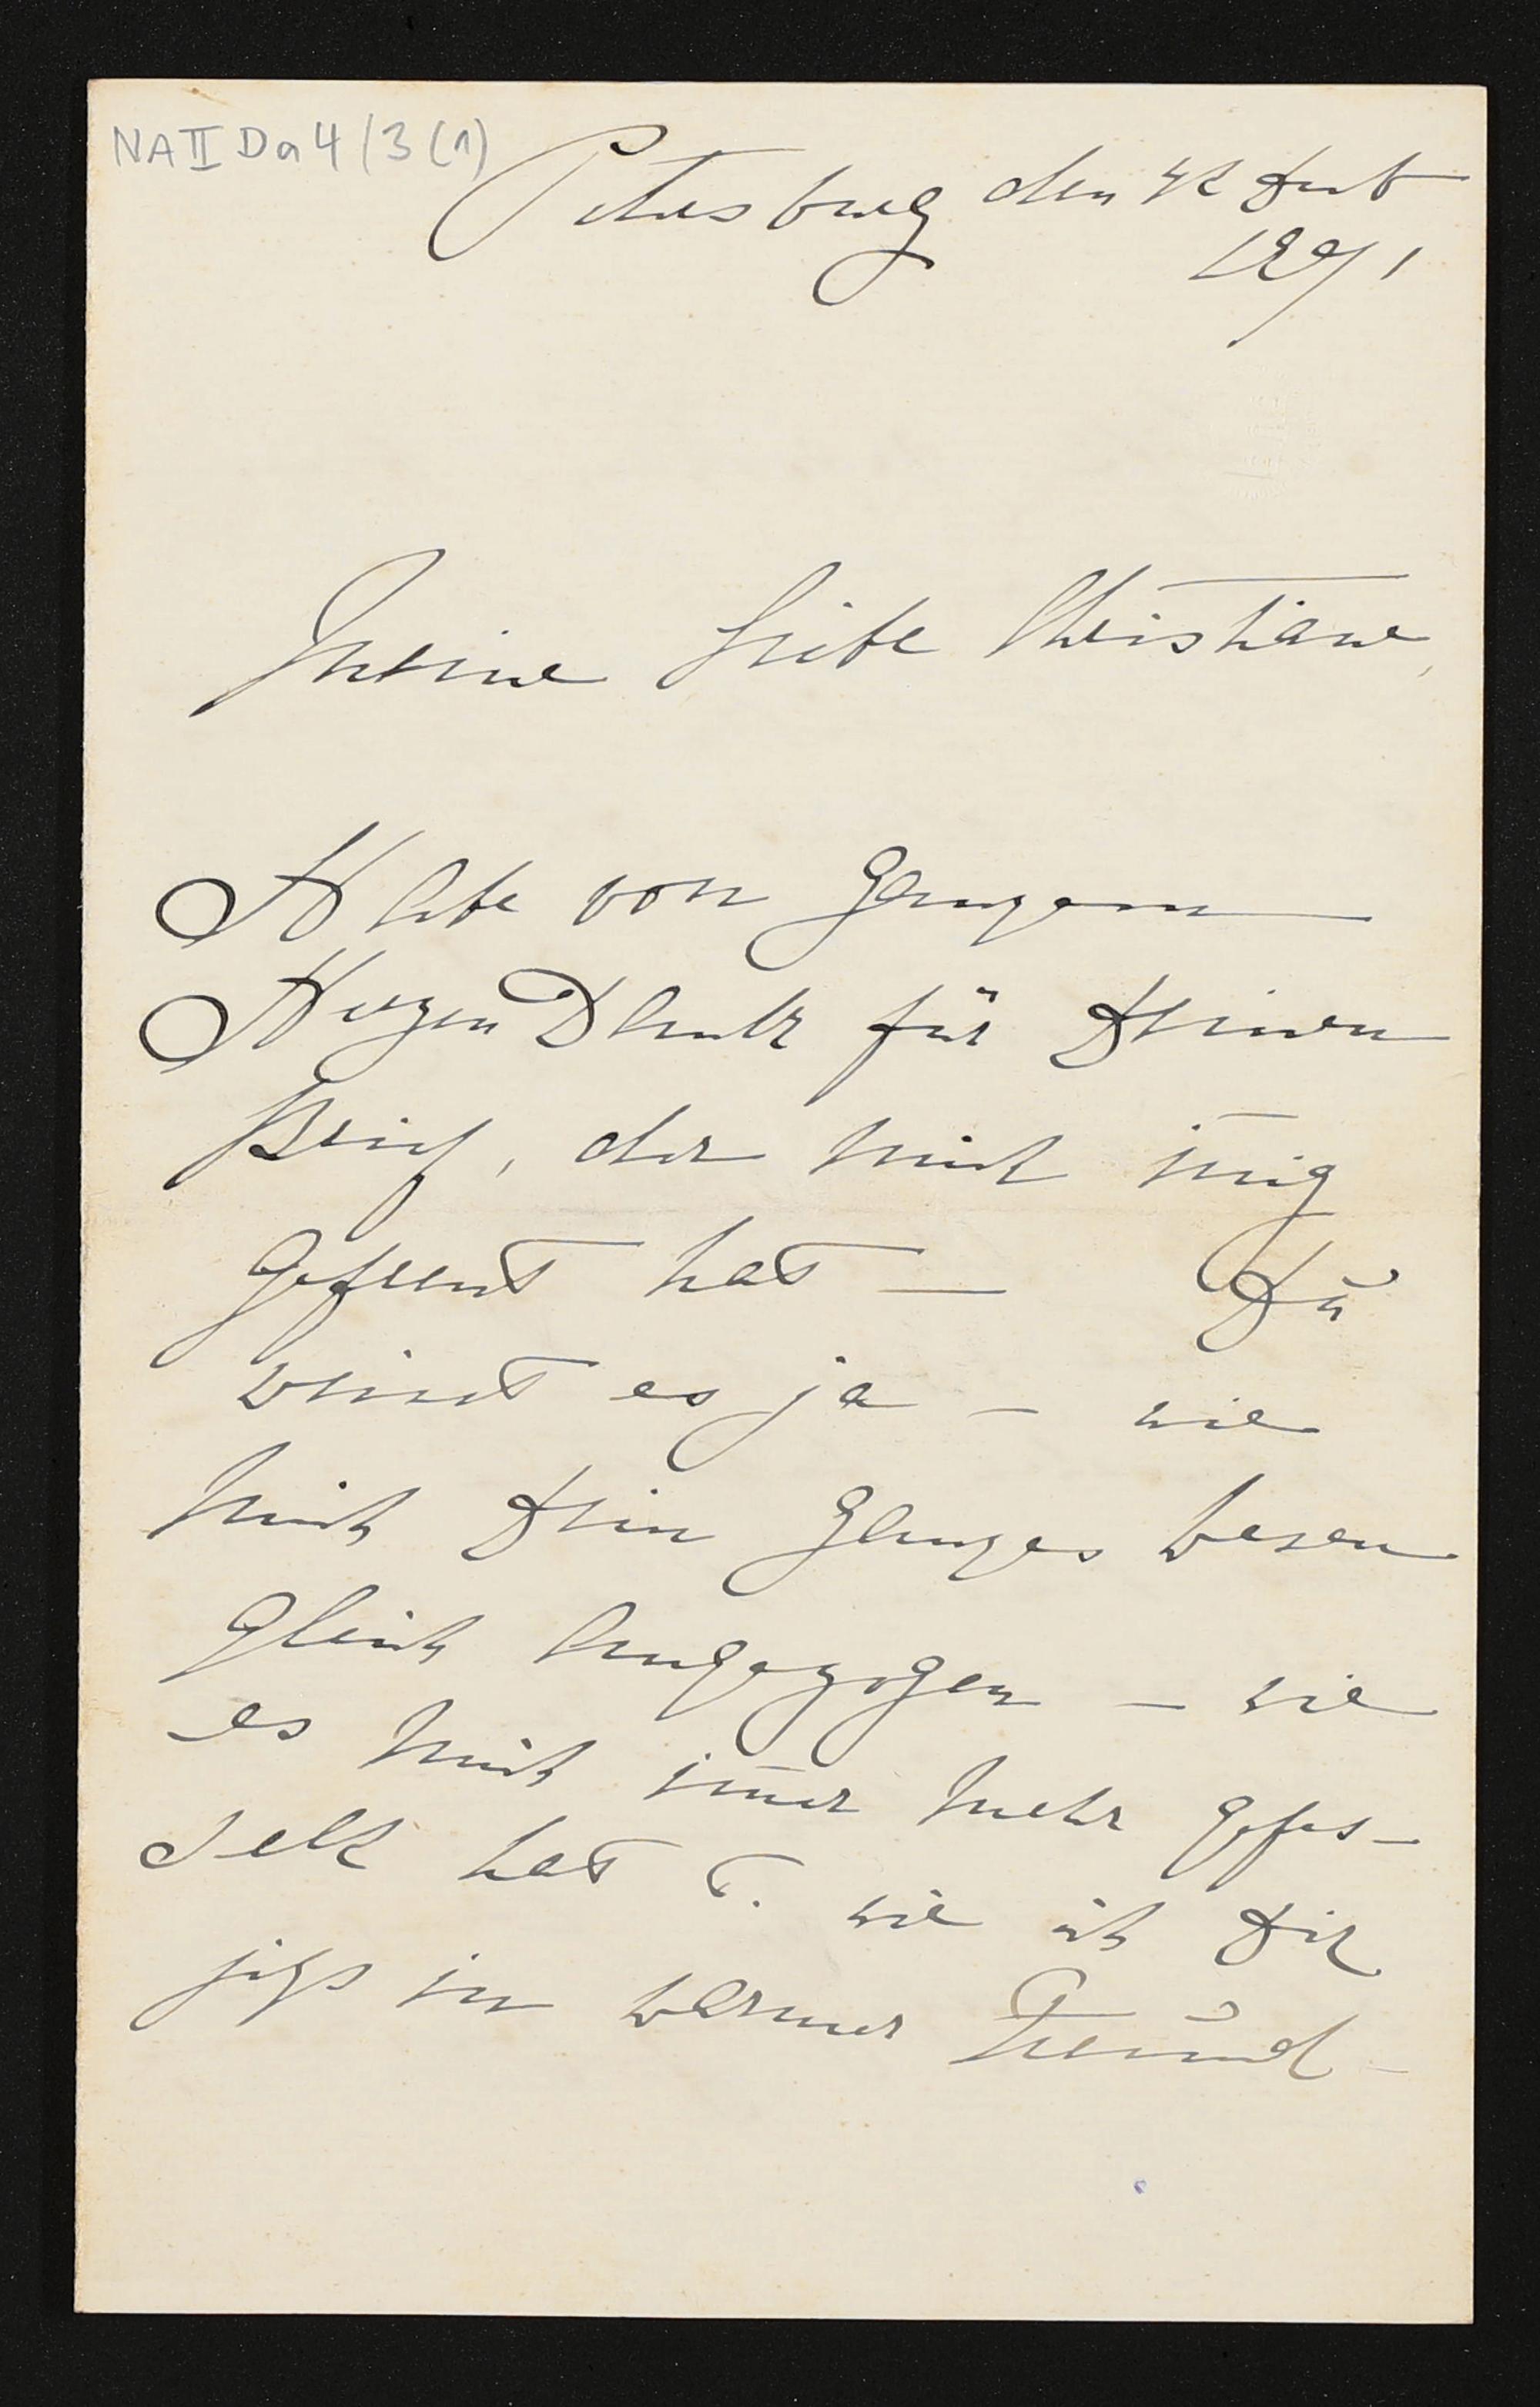 NA II Da 4/3 (1)
Petersburg den
1891
Meine Liebe Christiane,
Habe von Ganzem
Herzen Dank für Deinen
Brief, der mich iñig
gefreut hat — Dŭ
weisst es ja — wie
mich Dein Ganzes Wesen
Gleich Angezogen — wie
es mich im̄er mehr gefes-
selt hat u. wie ich Dir
jetzt in warmer Freŭnd-